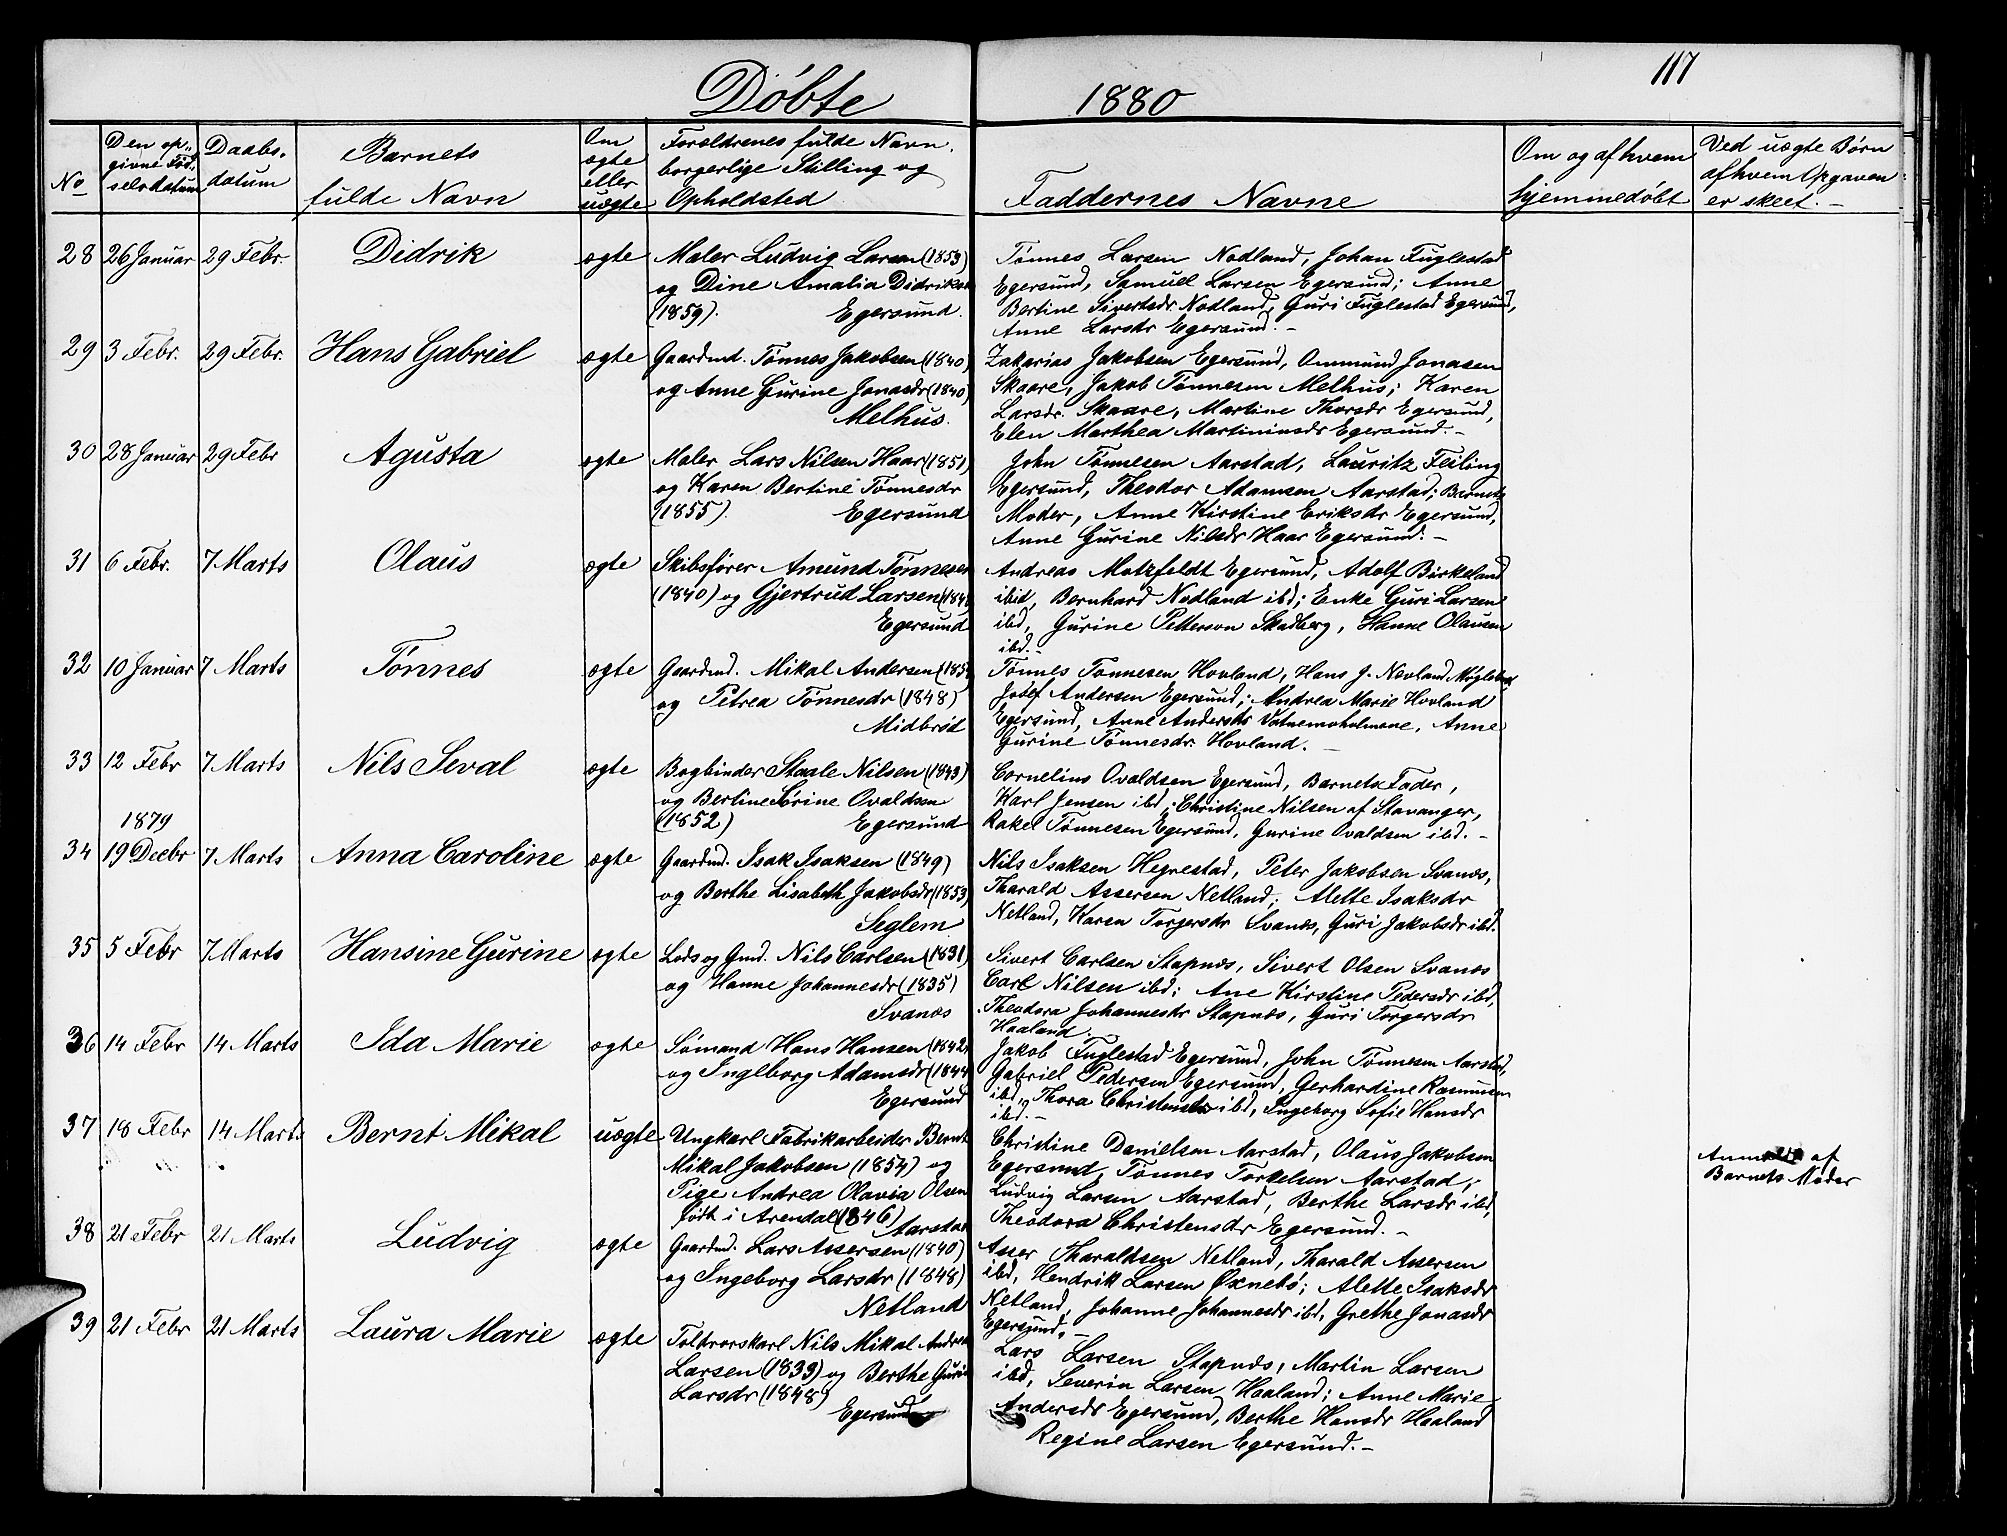 117
Døbte 1880
No
Den op-
givne Fød-
selsdatum
Daabs-
datum
Barnets
fulde Navn
Om
ægte
eller
uægte
Forældrenes fulde Navn,
borgerlige Stilling og
Opholdsted
Faddernes Navne
Om og af hvem
hjemmedøbt
Ved uægte Børn
af hvem Opgaven
er skeet.-
28 26 Januar 29 Febr. Didrik ægte
Maler Ludvig Larsen (1853)
og Dine Amalia Didriksen
(1859). Egersund.
Tønnes Larsen Nodland, Johan Fuglestad
Egersund, Samuel Larsen Egersund; Anne
Bertine Sivertsdr Nodland, Guri Fuglestad Egersund,
Anne Larsdr Egersund.-
29 3 Febr. 29 Febr. Hans Gabriel ægte
Gaardmd. Tønnes Jakobsen (1840)
og Anne Gurine Jonasdr (1840)
Melhus.
Zakarias Jakobsen Egersund, Ommund Jonasen
Skaare, Jakob Tønnesen Melhus; Karen
Larsdr. Skaare, Martine Thorsdr Egersund,
Elen Marthea Martiniusdr Egersund.-
30 28 Januar 29 Febr Agusta ægte
Maler Lars Nilsen Haar (1851)
og Karen Bertine Tønnesdr
(1855). Egersund
John Tønnesen Aarstad, Lauritz Feiling
Egersund, Theodor Adamsen Aarstad; Barnets
Moder, Anne Kirstine Eriksdr Egersund,
Anne Gurine Nilsdr Haar Egersund.-
31 6 Febr. 7 Marts Olaus ægte
Skibsfører Amund Tønnesen
(1840) og Gjertrud Larsen
Egersund
Andreas Motzfeldt Egersund, Adolf Birkeland
ibid, Bernhard Nodland ibd; Enke Guri Larsen
ibd, Gurine Petterson Skadberg, Hanne Olausen
ibd.-
32 10 Januar 7 Marts Tønnes ægte
Gaardmd. Mikal Andersen
og Petrea Tønnesdr (1848)
Midbrød
Tønnes Tønnesen Hovland, Hans J. Nevland Møglebust
Josef Andersen Egersund; Andrea Marie Hovland
Egersund, Anne Andersdr Vatnemoholmene, Anne
Gurine Tønnesdr. Hovland.-
33 12 Febr 7 Marts Nils Seval ægte
Bogbinder Staale Nilsen (1843)
og Bertine Sørine Ovaldsen
(1852) Egersund
Cornelius Ovaldsen Egersund, Barnets Fader,
Karl Jensen ibd; Christine Nilsen af Stavanger,
Rakel Tønnesen Egersund, Gurine Ovaldsen ibd.-
1879
34 19 Decbr 7 Marts Anna Caroline ægte
Gaardmd. Isak Isaksen (1849)
og Berthe Lisabeth Jakobsdr (1853)
Seglem
Nils Isaksen Hegrestad, Peter Jakobsen Svanæs,
Tharald Assersen Netland; Alette Isaksdr
Netland, Karen Torgersdr Svanæs, Guri Jakobsdr ibd.
35 5 Febr 7 Marts Hansine Gurine ægte
Lods og Gmd. Nils Carlsen (1831)
og Hanne Johannesdr (1835)
Svanæs
Sivert Carlsen Stapnæs, Sivert Olsen Svanæs
Carl Nilsen ibd; Ane Kirstine Pedersdr ibd,
Theodora Johannesdr Stapnæs, Guri Torgersdr
Haaland.
36 14 Febr 14 Marts Ida Marie ægte
Sømand Hans Hansen (1842)
og Ingeborg Adamsdr (1844
Egersund
Jakob Fuglestad Egersund, John Tønnesen Aarstad,
Gabriel Pedersen Egersund, Gerhardine Rasmussen
ibd, Thora Christensdr ibd, Ingeborg Sofie Hansdr
ibd.-
37 18 Febr 14 Marts Bernt Mikal uægte
Ungkarl Fabrikarbeider Bernt
Mikal Jakobsen (1854) og
Pige Andrea Olavia Olsen
født i Arendal (1846) Aarstad
Christine Danielsen Aarstad, Olaus Jakobsen
Egersund, Tønnes Torkelsen Aarstad;
Ludvig Larsen Aarstad, Berthe Larsdr ibd,
Theodora Christensdr Egersund.-
Anmeldt af
Barnets Moder
38 21 Febr 21 Marts Ludvig ægte
Gaardmd. Lars Assersen (1840)
og Ingeborg Larsdr (1848)
Netland
Asser Tharaldsen Netland, Tharald Assersen
ibd, Hendrik Larsen Øxnebø; Alette Isaksdr
Netland, Johanne Johannesdr ibd, Grethe Jonasdr
Egersund,-
39 21 Febr 21 Marts Laura Marie ægte
Toldrorskarl Nils Mikal Andreas
Larsen (1833) og Berthe Gurine
Larsdr (1848)
Egersund
Lars Larsen Stapnæs, Martin Larsen
ibd, Severin Larsen Haaland; Anne Marie
Andersdr Egersund, Berthe Hansdr Haaland
Regine Larsen Egersund.-